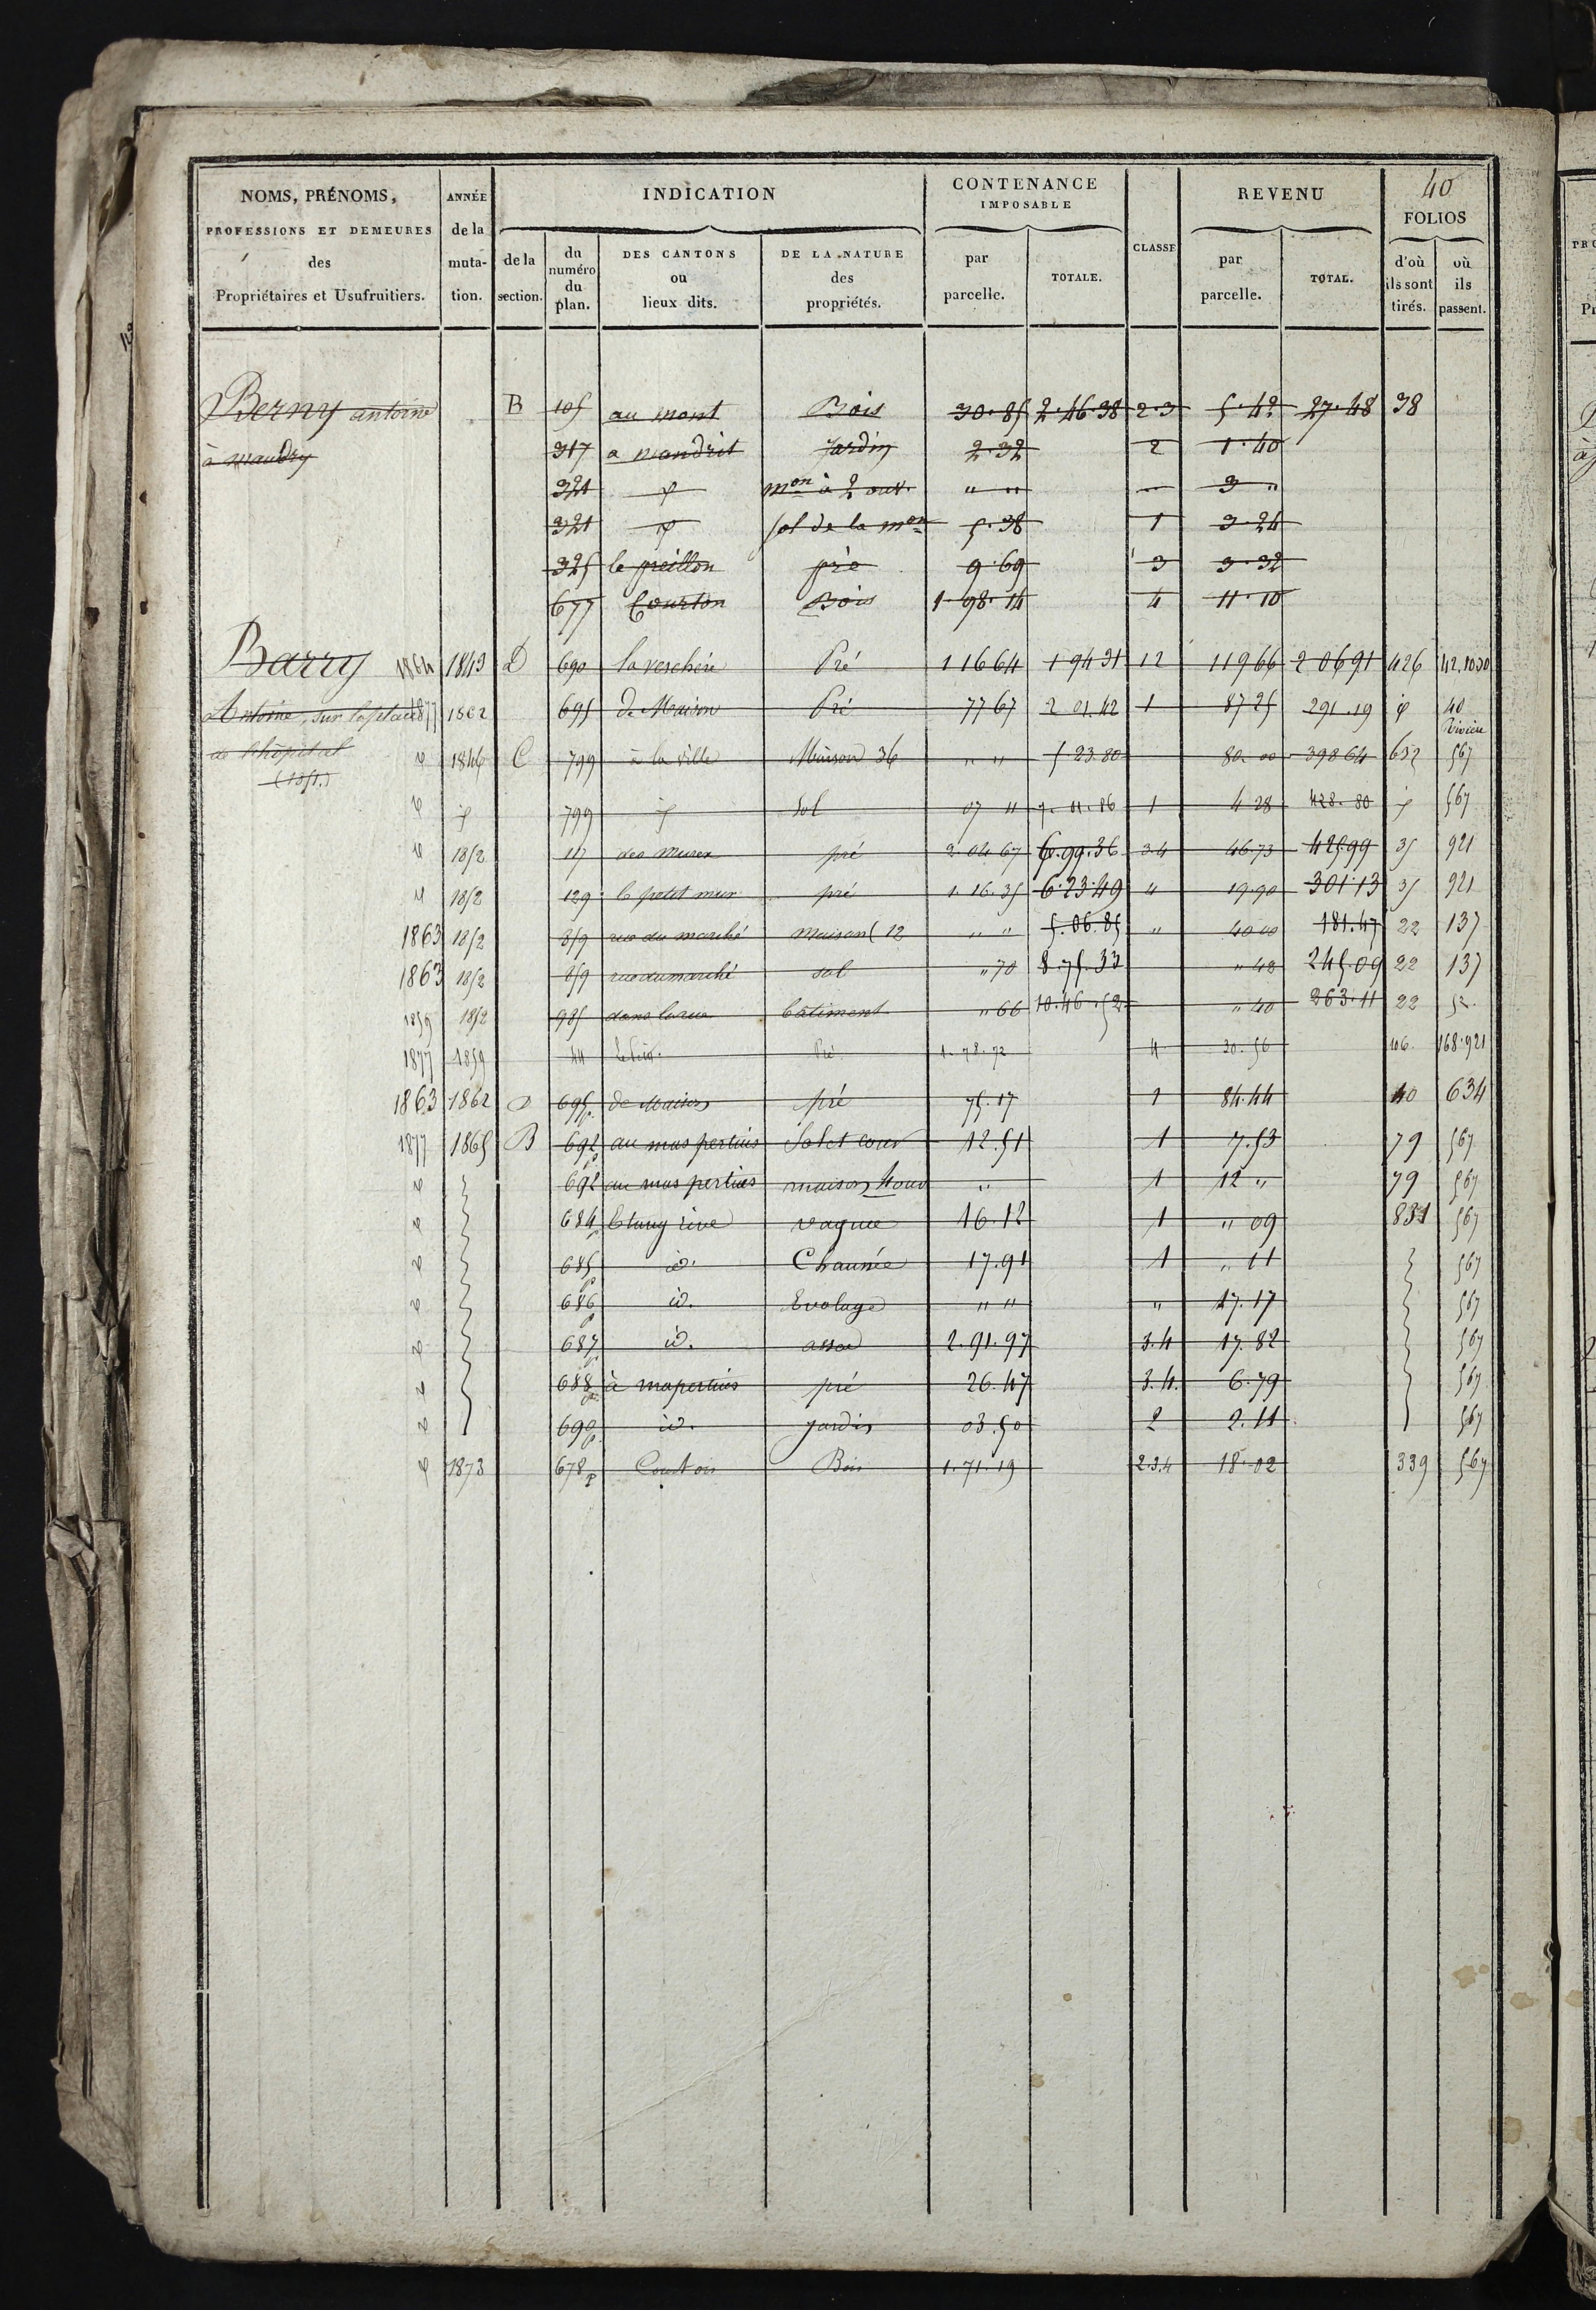 40
NOMS, PRÉNOMS, PROFESSIONS ET DEMEURES des Propriétaires et Usufruitiers.
ANNÉE de la muta- tion.
INDICATION
de la section.
du numéro du plan.
DES CANTONS ou lieux dits.
DE LA NATURE des propriétés.
CONTENANCE IMPOSABLE
par parcelle.
TOTALE.
CLASSE
REVENU
par parcelle.
TOTAL.
FOLIOS
d'où ils sont tirés.
où ils passent.
Berny antoine B 105 au mont Bois 30.85 2.46.38 2.3 5.42 27.48 38
à maudry 317 a mandrit Jardin 2.32 2 1.40
321 mon à 2 ouv. " " 3 "
321 sol de la mon 5.38 1 3.24
325 le preillon pré 9.69 3 3.32
677 Courton Bois 1.98.14 4 11.10
Barry 1864 1843 D 690 la verchère Pré 1 16 64 1 94 31 12 119 66 2 06 91 426 42.1030
Antoine, sur la place 1877 1862 695 de Maison Pré 77 67 2 01.42 1 87 25 291.19 id 40
Rivière
de l'hôpital 1846 C 799 à la ville Maison 36 " " 5 23.80 80.00 398 64 632 567
(1851.)
799 Sol 07 " 1 4 28 428.80 567
1852 117 des Mures pré 2.04 67 6.99.36 34 46.73 425.99 35 921
1852 129 le petit mur pré 1.16.35 6.23.49 " 19.90 301.13 35 921
1863 1852 859 rue du marché Maison ( 12 " " 5.06.85 " 40 00 181.47 22 137
1863 1852 859 rue du marché sol " 70 8.75.33 " 48 245.09 22 137
1859 1852 985 dans la rue bâtiment " 66 10.46.52 " 40 263.11 22
1877 1859 44 Pré 1.78.72 4 30.56 106 168.921
1863 1862 D 695p de Maison pré 75.17 1 84.44 40 634
1877 1865 B 692p au mas pertuis Sol et cour 12.51 1 7.53 79 567
692 au mas pertuis maison 4 ouv " 1 12 " 79 567
684p Etang rive vague 16.12 1 " 09 831 567
685p id. Chaunée 17.91 1 " 11 567
686p id. Evolage " " " 17.17 567
687p id. assec 2.91.97 3.4 17.82 567
688p à mapertuis pré 26.47 3.4. 6.79 567
690p. id. jardin 03.50 2 2.11 567
1873 678p Courton Bois 1.71.19 2.3.4 18.02 339 567